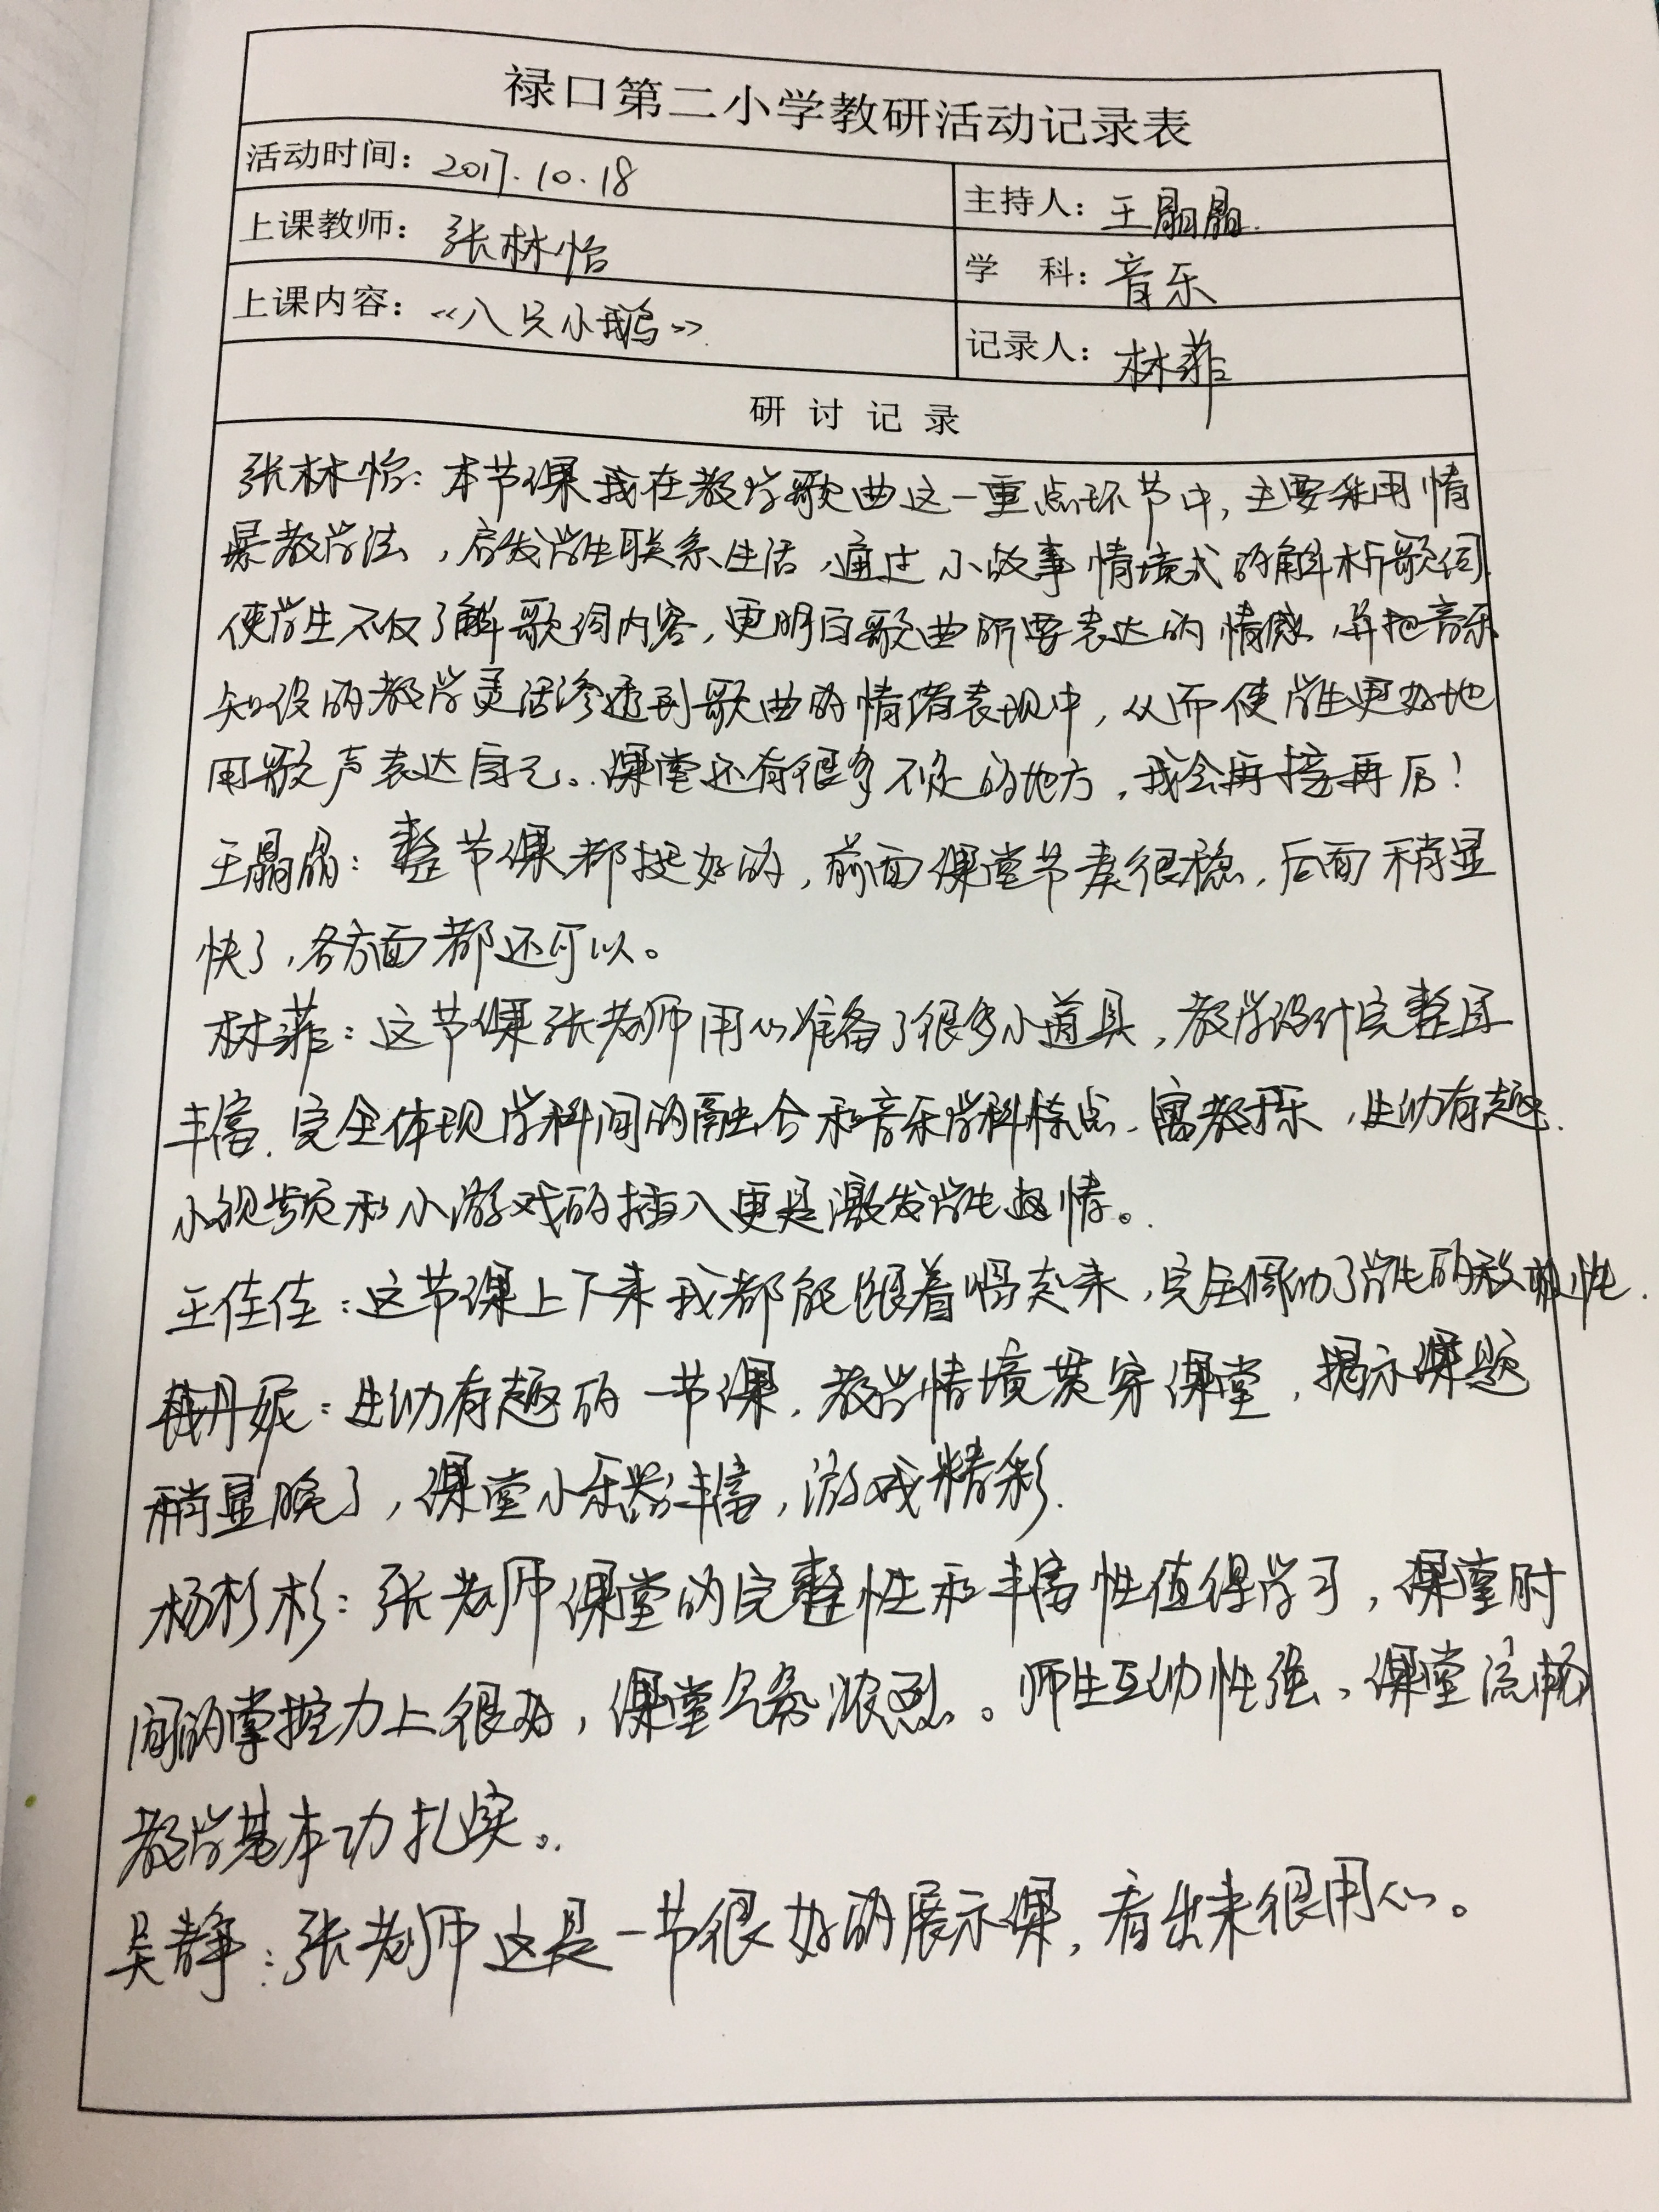 禄口第二小学教研活动记录表
活动时间：2017.10.18
主持人：王晶晶
上课教师：张林怡
学 科：音乐
上课内容：《八只小鹅》
记录人：林菲
研 讨 记 录
张林怡：本节课我在教学歌曲这一重点环节中，主要采用情
景教学法，启发学生联系生活，通过小故事情境式的解析歌词，
使学生不仅了解歌词内容，更明白歌曲所要表达的情感，并把音乐
知识的教学灵活渗透到歌曲的情绪表现中，从而使学生更好地
用歌声表达自己。课堂还有很多不足的地方，我会再接再厉！
王晶晶：整节课都挺好的，前面课堂节奏很稳，后面稍显
快了，各方面都还可以。
林菲：这节课张老师用心准备了很多小道具，教学设计完整且
丰富，完全体现学科间的融合和音乐学科特点，寓教于乐，生动有趣.
小视频和小游戏的插入更是激发学生热情。
王佳佳：这节课上下来我都能跟着唱起来，完全调动了学生的积极性.
钱丹妮：生动有趣的一节课，教学情境贯穿课堂，揭示课题
稍显晚了，课堂小乐器丰富，游戏精彩.
杨杉杉：张老师课堂的完整性和丰富性值得学习，课堂时
间的掌控力上很好，课堂气氛浓烈。师生互动性强，课堂流畅
教学基本功扎实。
吴静：张老师这是一节很好的展示课，看出来很用心。